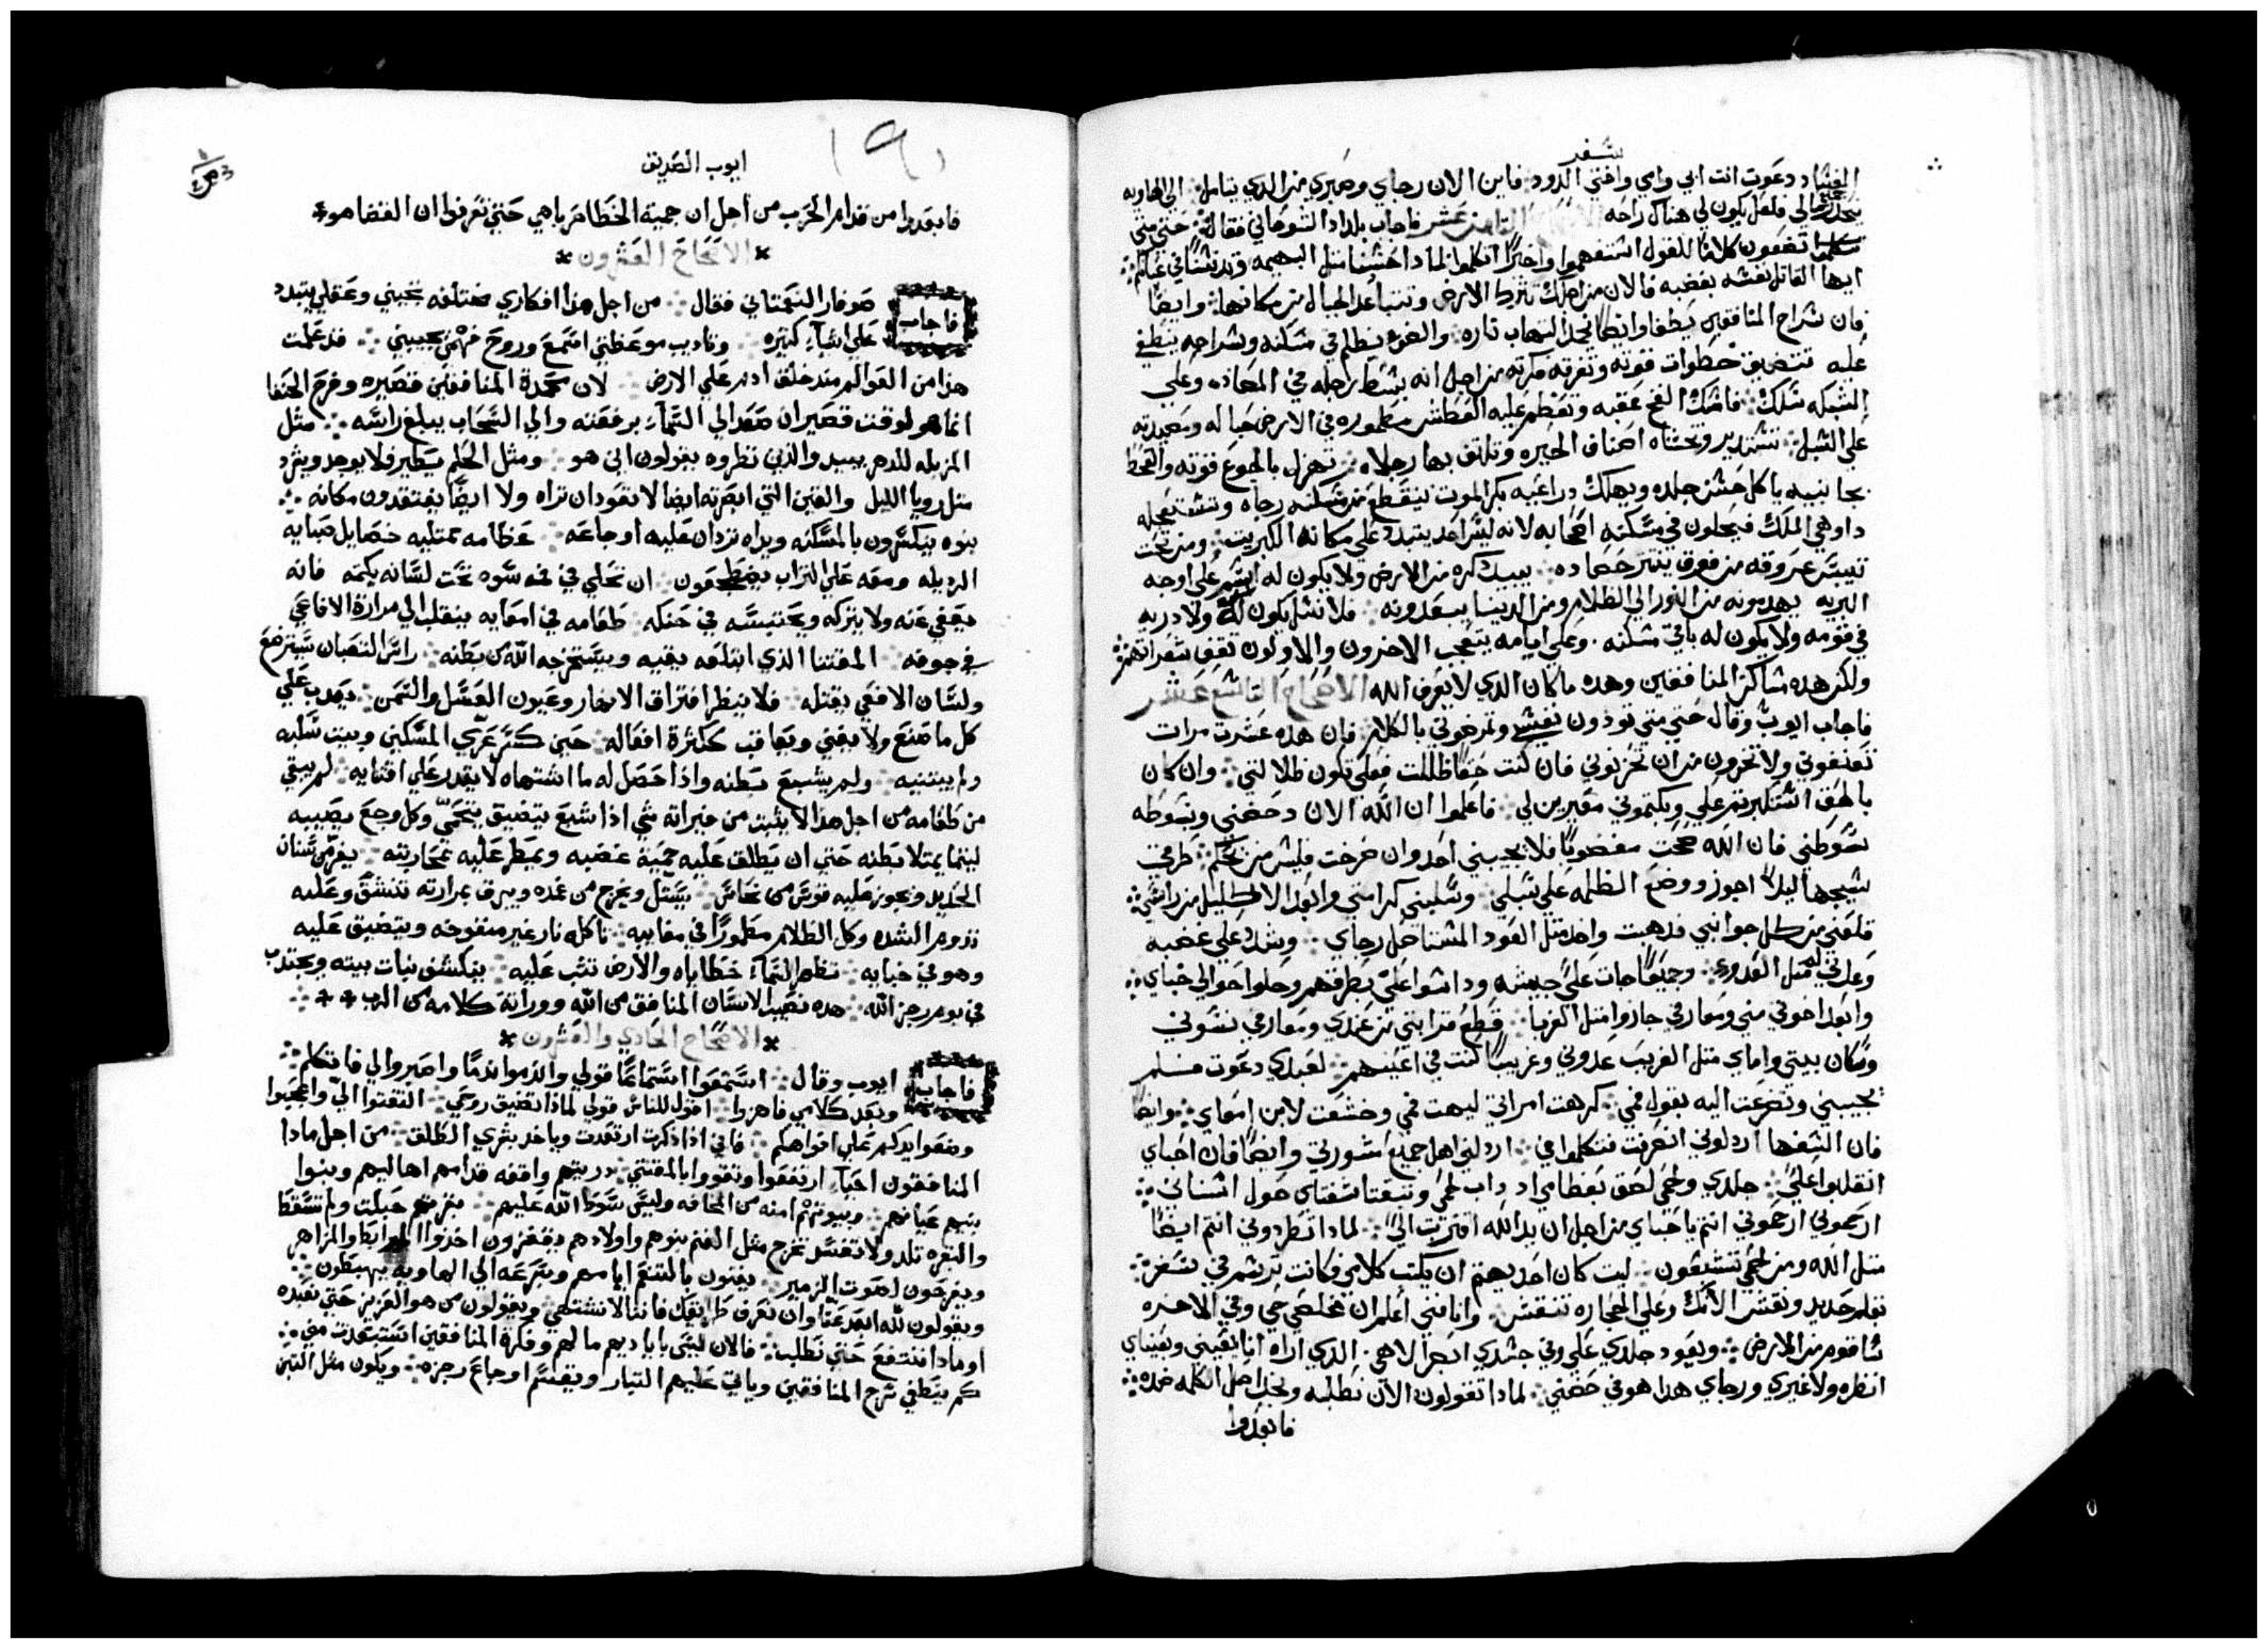 سفر
الفساد دعوت انت ابي وامي واختي الدود فاين الان رجاي وصبري من الدي يتامل الي الهاويه
ينحدر الي فلعل يكون لي هناك راحه الثامن عشر فاجاب بلداد الشوحاني فقال حتي متي
تضعون كلاما للقول استفهموا واخيرا اتكلموا لماذا حسبنا متل البهيمه وتدنسنا في عيانكم
ايها القاتل نفسه بغضبه فالان من اجلك تترك الارض وتتباعد الجبال من مكانها وايضا
فان سراج المنافقين يطفا وايضا لا التهاب ناره والضوء يظلم في مسكنه وسراجه ينطفي
عليه تتضيق خطوات قوته وتفرقه مكرته من اجل انه بسط رجله في المصاده وعلي
الشبكه سلك فامسك الفخ عقبه وتعظم عليه العطش مطموره في الارض حباله ومصيدته
علي السبل تستدير وتحتاه اصناف الحيره وتلتف بها رجلاه تهزل بالجوع قوته والقحط
بجانبيه ياكل حسن جلده ويهلك دراعيه بكر الموت لينقطع من مسكنه رجاه وتستعجله
دواهي الملك فيحلون في مسكنه اصحابه لانه ليس احد يتبدد علي مكانه الكبريت ومن تحت
تيبس عروقه من فوق ينتر حصاده يبيد دكره من الارض ولا يكون له اسم علي اوجه
البريه يهدمونه من النور الي الظلام ومن الدنيا يبعدونه فلا نسل يكون له ولا دريه
في قومه ولا يكون له باقي مسكنه وعلي ايامه يتعجب الاخرون والاولون تقف شعراتهم
ولكن هده مساكن المنافقين وهده مكان الدي لا يعرف الله الاصحاح التاسع عشر
فاجاب ايوب وقال حتي متي تودون نفسي وتمرضوني بالكلام فان هده عشرت مرات
تعنفوني ولا تخزون من ان تحزنوني فان كنت حقا ظللت فعلي تكون ظلالتي وان كان
بالحق استكبرتم علي وبكتموني معيرين لي فاعلموا ان الله الان دحضني وبسوطه
سوطني فان الله صحت مغضوبا فلا يجيبني احد وان صرخت فليس من يحكم طرقي
سيجها ليلا اجوز ووضع الظلمه علي سبلي وسلبني كرامتي وابعد الاكليل من راسي
قلعني من كل جوانبي فدهبت واخد متل العود المستاصل رجاي وشدد علي غضبه
وعدني له متل العدو وجميعا جات علي جيشه وداسوا علي بطرقهم وحلوا حوالي خباي
وابعد اخوتي مني ومعارفي جازوا متل الغربا قطع قرابتي من عندي ومعارفي نسوني
وسكان بيتي واماي متل الغريب عدوني وغريبا كنت في اعينهم لعبدي دعوت فلم
يجيبني وتضرعت اليه بقول فمي كرهت امراتي لهت فمي وخشعت لابن امعاي وايضا
فان السفها اردلوني انصرفت فتكلموا في اردلني اهل جميع مشورتي وايضا فان احباي
انقلبوا علي جلدي ولحمي لصق بعظامي داب لحمي وتبقتا شفتاي حول اسناني
ارحموني ارحموني انتم يا احباي من اجل ان يد الله اقتربت الي لماذا تطردوني انتم ايضا
متل الله ومن لحمي تشبعون ليت كان احد يهتم ان يكتب كلامي وكانت ترسم في سفر
بقلم حديد ونقش الانك وعلي الحجاره تنقش وانا فاني اعلم ان مخلصي حي وفي الاخره
ساقوم من الارض ويعود جلدي علي وفي جسدي ابصر الاهي الدي اراه انا بعيني وبعيناي
انظره ولا غيري ورجاي هدا هو في حضني لماذا تقولون الان نطلبه ونجد اصل الكلمه ضده
فابعدوا
ايوب الصديق
فابعدوا من قدام الحرب من اجل ان حمية الخطا حرباهي حتي تعرفوا ان القضا هو
الاصحاح العشرون
فاجاب صوفار النعماتي فقال من اجل هذا افكاري مختلفه تجيبني وعقلي يتبدد
علي اشياء كتيره وتاديب موعظتي استمع وروح فهمي تجيبني قد علمت
هذا من العوالم مند خلق ادم علي الارض لان محمدة المنافقين قصيره وفرح الحنفا
انما هو لوقت قصير ان صعد الي السماء برفعته والي السحاب يبلغ راسه مثل
المزبله للدهر يبيد والذين نظروه يقولون اين هو ومثل الحلم يطير ولا يوجد ويشرد
مثل رويا الليل والعين التي ابصرته ايضا لا تعود ان تراه ولا ايضا يفتقدون مكانه
بنوه ينكسرون بالمسكنه ويداه تردان عليه اوجاعه عظامه تمتليه خصايل صبايه
الرديله ومعه علي التراب يضطجعون ان تحلي في فمه سوه تحت لسانه يكتمه فانه
يعفي عنه ولا يتركه ويحتبسه في حنكه طعامه في امعايه ينقلب الي مرارة الافاعي
في جوفه المقتنا الذي ابتلعه يقيه ويستخرجه الله من بطنه راس الثعبان سيترضع
ولسان الافعي يقتله فلا ينظر افتراق الانهار وعيون العسل والسمن يعدب علي
كل ما صنع ولا يفني ويعاقب ككثرة افعاله حين كسر عري المسكين وبيت سلبه
ولم يبتنيه ولم يشبع بطنه واذا حصل له ما اشتهاه لا يقدر علي اقتنايه لم يبقي
من طعامه من اجل هذا لا يثبت من خيراته شي اذا شبع يتضيق يتحمي وكل وجع يصيبه
ليتما يمتلا بطنه حتي ان يطلق عليه حمية غضبه ويمطر عليه محاربته يفر من سنان
الحديد ويجوز عليه قوس من نحاس يستل ويخرج من غمده ويبرق بمرارته تنشق وعليه
تدوم الشده وكل الظلام مطمورا في مغاييه تاكله نار غير منفوخه ويتضيق عليه
وهو في خبايه تظهر السماء خطاياه والارض تثب عليه ينكشف نبات بيته ويجتدب
في يوم رجز الله هده نصيب الانسان المنافق من الله ووراثة كلامه من الرب
الاصحاح الحادي والعشرون
فاجاب ايوب وقال استمعوا استماعا قولي والزموا ندما واصبروا لي فاتكلم
وبعد كلامي فاهزوا اقول للناس قولي لماذا تضيق روحي التفتوا الي واعجبوا
وضعوا يدكم علي افواهكم فاني اذا ذكرت ارتعدت وياخد بشري الطلق من اجل مادا
المنافقون احياء ارتفعوا وتقووا بالمقتني دريتهم واقفه قدامهم اهاليهم وبنوا
بنيهم عيانهم وبيوتهم امنه من المخافه وليس سوط الله عليهم بقرتهم حبلت ولم تسقط
والبقره تلد ولا تفسد تخرج مثل الغنم بنوهم واولادهم يقفزون اخذوا الطبل والمزاهر
ويفرحون لصوت المزمير يفنون بالتنعم ايامهم وبسرعه الي الهاويه يهبطون
ويقولون لله ابعد عنا وان نعرف طرايقك فاننا لا نشتهي ويقولون من هو العزيز حتي نعبده
او مادا ننتفع حتي نطلب فالان ليس بايديهم مالهم وفكرة المنافقين استبعدت مني
كم ينطفي سرج المنافقين وياتي عليهم التيار ويقسم اوجاع رجزه ويكون مثل التبن